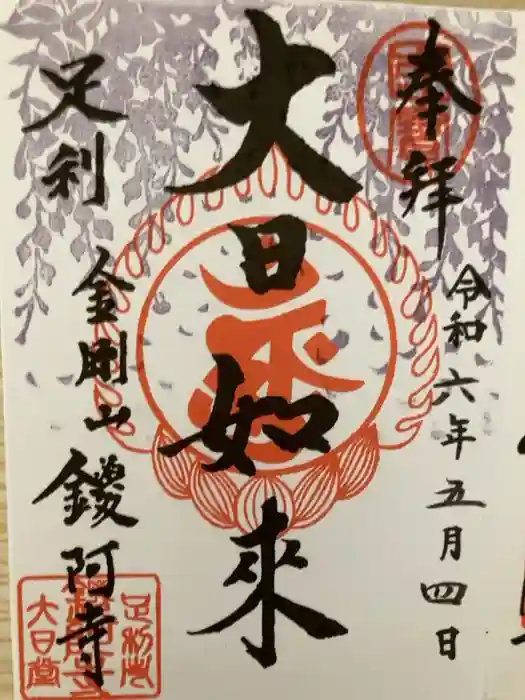 奉拝
令和六年五月四日
大日如來
足利
金剛山 鑁阿寺
足利市
大日堂